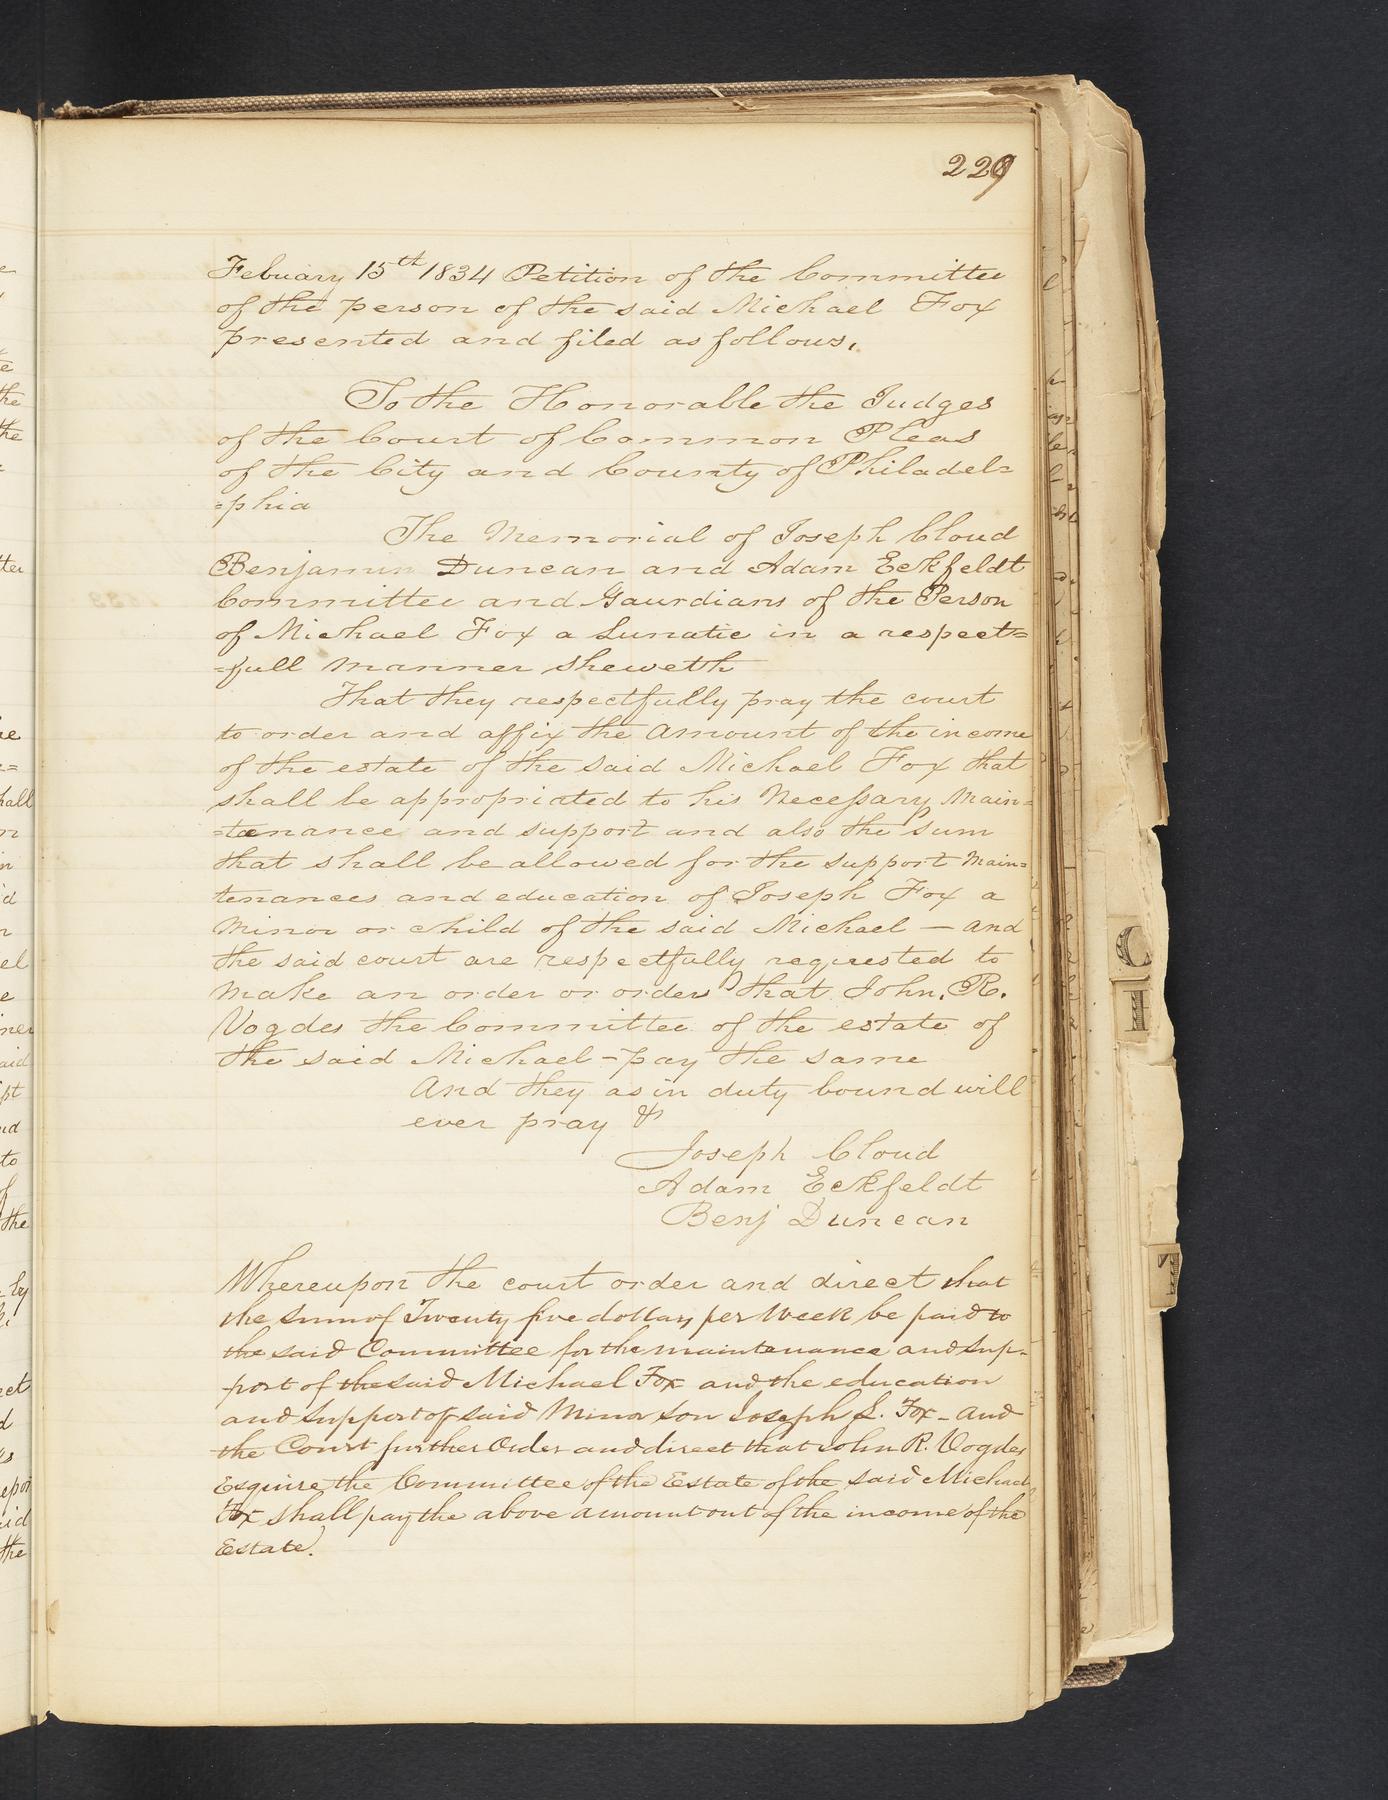 229
Febuary 15th 1834 Petition of the Committee
of the person of the said Michael Fox
presented and filed as follows,
To the Honorable the Judges
of the Court of Common Pleas
of the City and County of Philadel=
=phia
The Memorial of Joseph Cloud
Benjamin Duncan and Adam Eckfeldt
Committee and Gaurdians of the Person
of Michael Fox a Lunatic in a respect=
=full manner sheweth
That they respectfully pray the court
to order and affix the amount of the income
of the estate of the said Michael Fox that
shall be appropriated to his Necessary Main=
=tenance and support and also the sum
that shall be allowed for the support Main=
tenances and education of Joseph Fox a
Minor or child of the said Michael — and
the said court are respectfully requested to
make an order or orders that John. R.
Vogdes the Committee of the estate of
the said Michael - pay the same
And they as in duty bound will
ever pray &
Joseph Cloud
Adam Eckfeldt
Benj Duncan
Whereupon the court order and direct that
the Sum of Twenty five dollars per Week be paid to
the said Committee for the maintenance and Sup-
port of the said Michael Fox and the education
and Support of said Minor son Joseph S. Fox - and
the Court further Order and direct that John R. Vogdes
Esquire the Committee of the Estate of the said Michael
Fox shall pay the above amount out of the income of the
Estate.